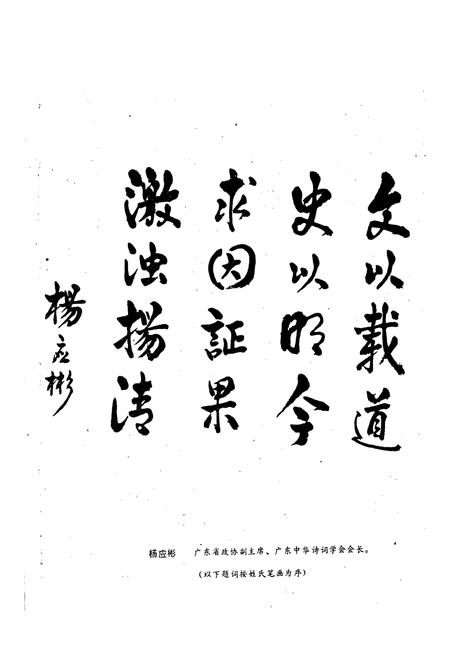 文以载道
史以明今
求因証果
激浊揚清
楊应彬
杨应彬 广东省政协副主席、广东中华诗词学会会长。
(以下题词按姓氏笔画为序)